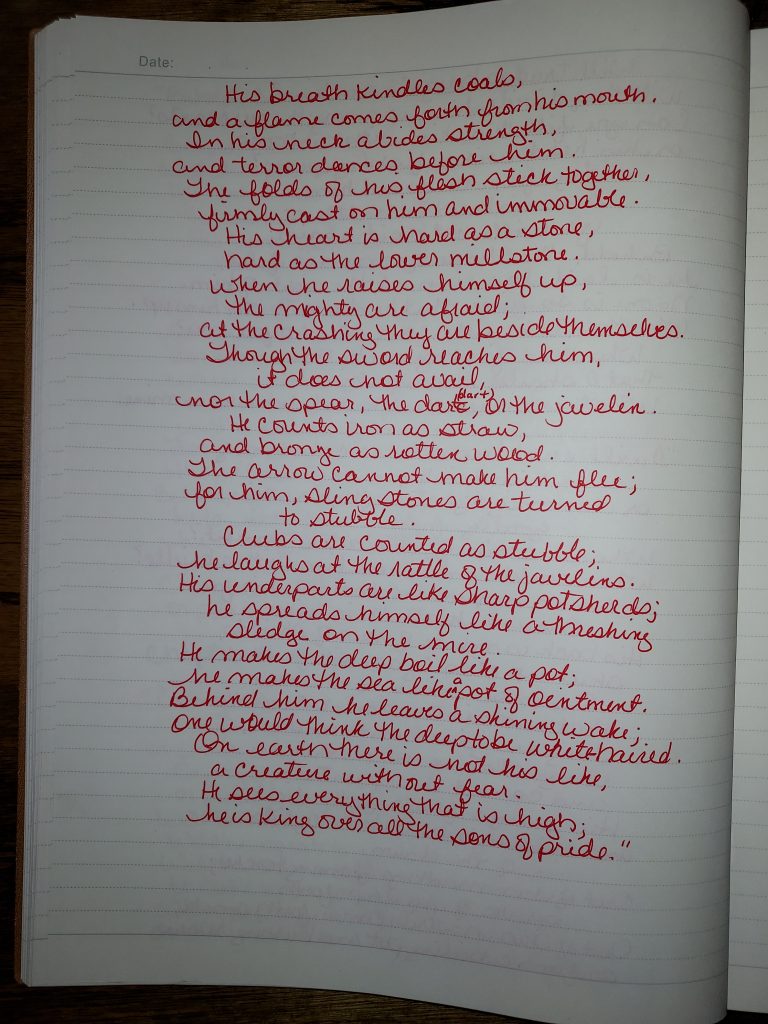 Date:
His breath kindles coals,
and a flame comes forth from his mouth.
In his neck abides strength,
and terror dances before him.
The folds of his flesh stick together,
firmly cast on him and immovable.
His heart is hard as a stone,
hard as the lower millstone.
When he raises himself up,
the mighty are afraid;
at the crashing they are beside themselves.
Though the sword reaches him,
it does not avail,
dart
nor the spear, the dart, or the javelin.
He counts iron as straw,
and bronze as rotten wood.
The arrow cannot make him flee;
for him, sling stones are turned
to stubble.
Clubs are counted as stubble;
he laughs at the rattle of the javelins.
His underparts are like sharp potsherds;
he spreads himself like a threshing
sledge on the mire.
He makes the deep boil like a pot;
he makes the sea like a pot of ointment.
Behind him he leaves a shining wake;
One would think the deep to be white-haired.
On earth there is not his like,
a creature without fear.
He sees everything that is high;
he is King over all the sons of pride."